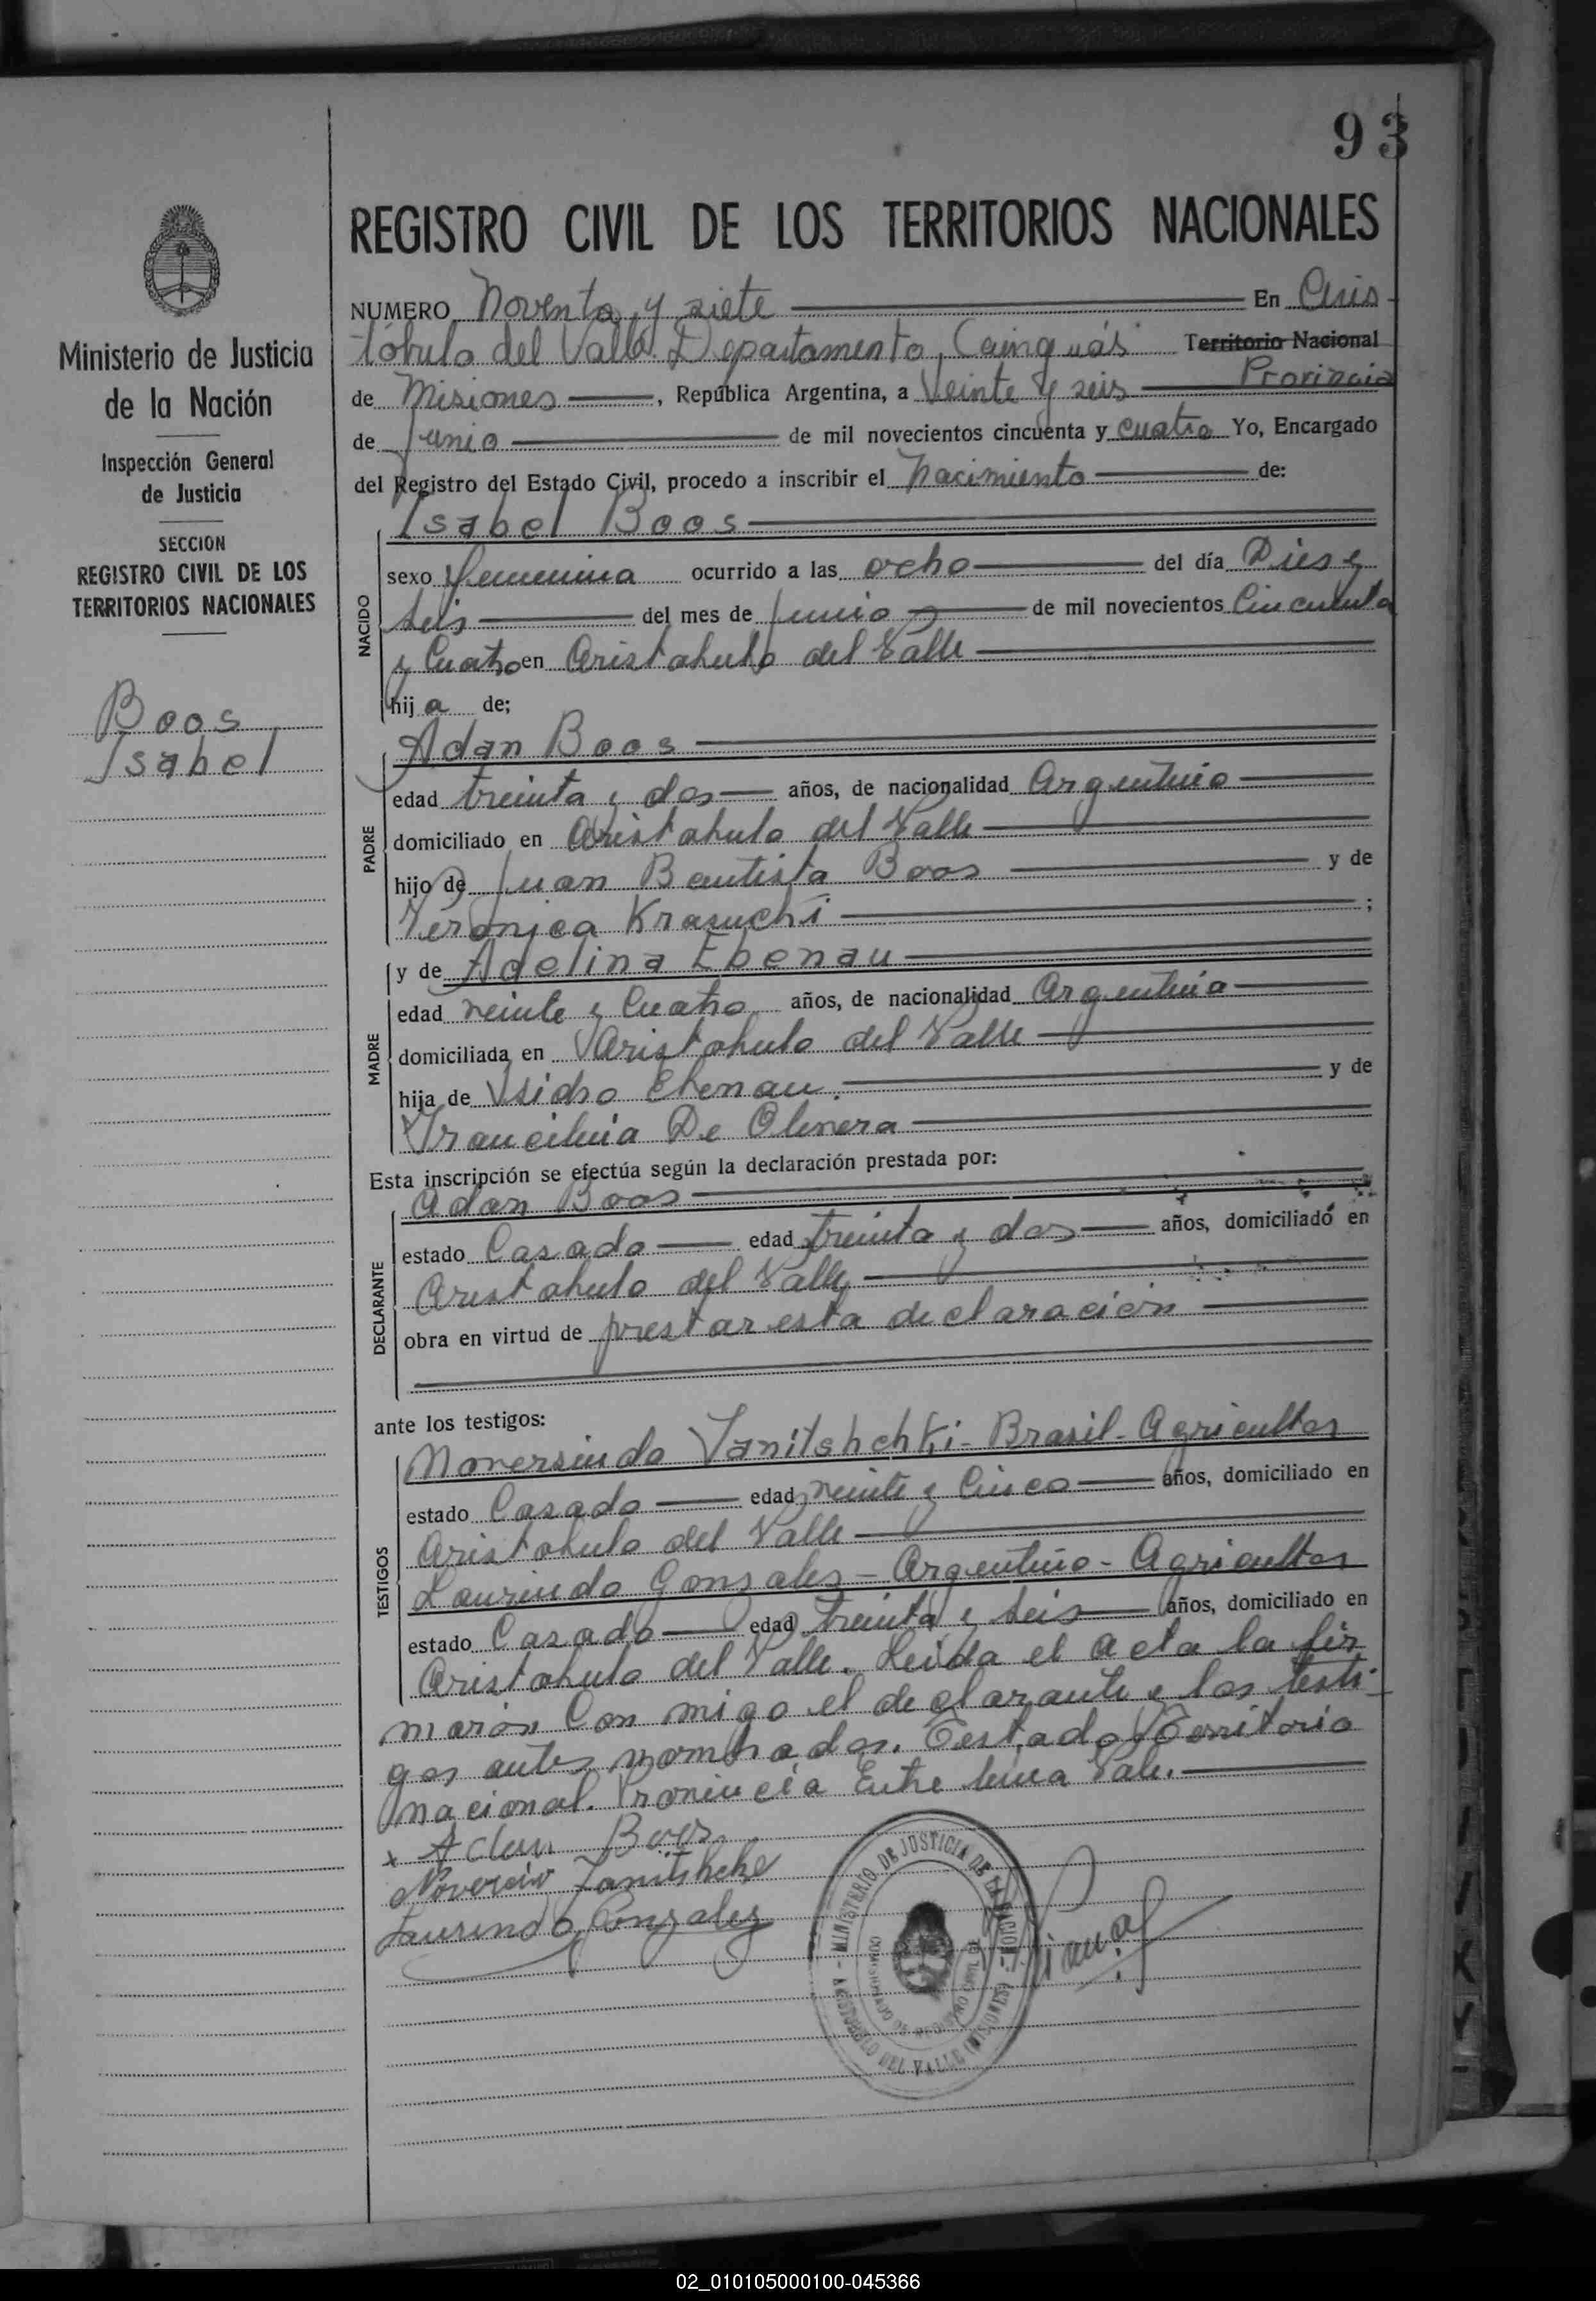 93
REGISTRO CIVIL DE LOS TERRITORIOS NACIONALES
Ministerio de Justicia
de la Nación
Inspección General
de Justicia
SECCION
REGISTRO CIVIL DE LOS
TERRITORIOS NACIONALES
Boos
Isabel
NUMERO Noventa y siete En Aris
tóbulo del Valle Departamento, Cainguás Territorio Nacional
de Misiones, República Argentina, a Veinte y seis Provincia
de Junio de mil novecientos cincuenta y cuatro Yo, Encargado
del Registro del Estado Civil, procedo a inscribir el nacimiento de:
Isabel Boos
NACIDO
sexo femenina ocurrido a las ocho del día Dies y
seis del mes de junio de mil novecientos Cincuenta
y Cuatro en Aristobulo del Valle
hij a de;
PADRE
Adan Boos
edad treinta y dos años, de nacionalidad Argentino
domiciliado en Aristobulo del Valle
hijo de Juan Bautista Boos y de
Veronica Krasuchi ;
MADRE
y de Adelina Ebenau
edad veinte y Cuatro años, de nacionalidad Argentina
domiciliada en Aristobulo del Valle
hija de Ysidro Ebenau. y de
De Olivera
Esta inscripción se efectúa según la declaración prestada por:
DECLARANTE
Adan Boos
estado Casado edad treinta y dos años, domiciliado en
Aristobulo del Valle
obra en virtud de prestar esta declaración
ante los testigos:
TESTIGOS
Brasil - Agricultor
estado Casado edad veinte y Cinco años, domiciliado en
Aristobulo del Valle
Laurindo Gonzales - Argentino - Agricultor
estado Casado edad treinta y seis años, domiciliado en
Aristobulo del Valle. Leida el acta la fir
maron Con migo el declarante y los testi-
gos antes nombrados. Testado Territorio
nacional. Provincia Entre linea Vale.
x Adan Boos
Laurindo Gonzales
MINISTERIO DE JUSTICIA DE LA NACION
ARISTOBULO DEL VALLE (MISIONES)
02_010105000100-045366